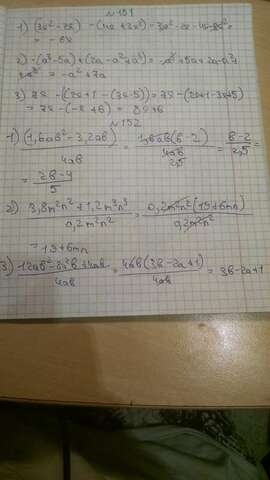 № 151
1) (3x² - 2x) - (4x + 3x²) = 3x² - 2x - 4x - 3x² =
= - 6x
2) -(a³ - 5a) + (2a - a² + a³) = -a³ + 5a + 2a - a² +
= -a² + 7a
3) 7x - (2x + 1 - (3x - 5)) = 7x - (2x + 1 - 3x + 5)
= 7x - (-x + 6) = 8x + 6
№ 152
1) (1,6ab² - 3,2ab) / 4ab = 1,6ab(b - 2) / 4ab 2,5 = b - 2 / 2,5 =
= 2b - 4 / 5
2) 3,8m²n² + 1,2m³n³ / 0,2m²n² = 0,2m²n²(19 + 6mn) / 0,2m²n²
= 19 + 6mn
3) 12ab² - 8a²b + 4ab / 4ab = 4ab(3b - 2a + 1) / 4ab = 3b - 2a + 1